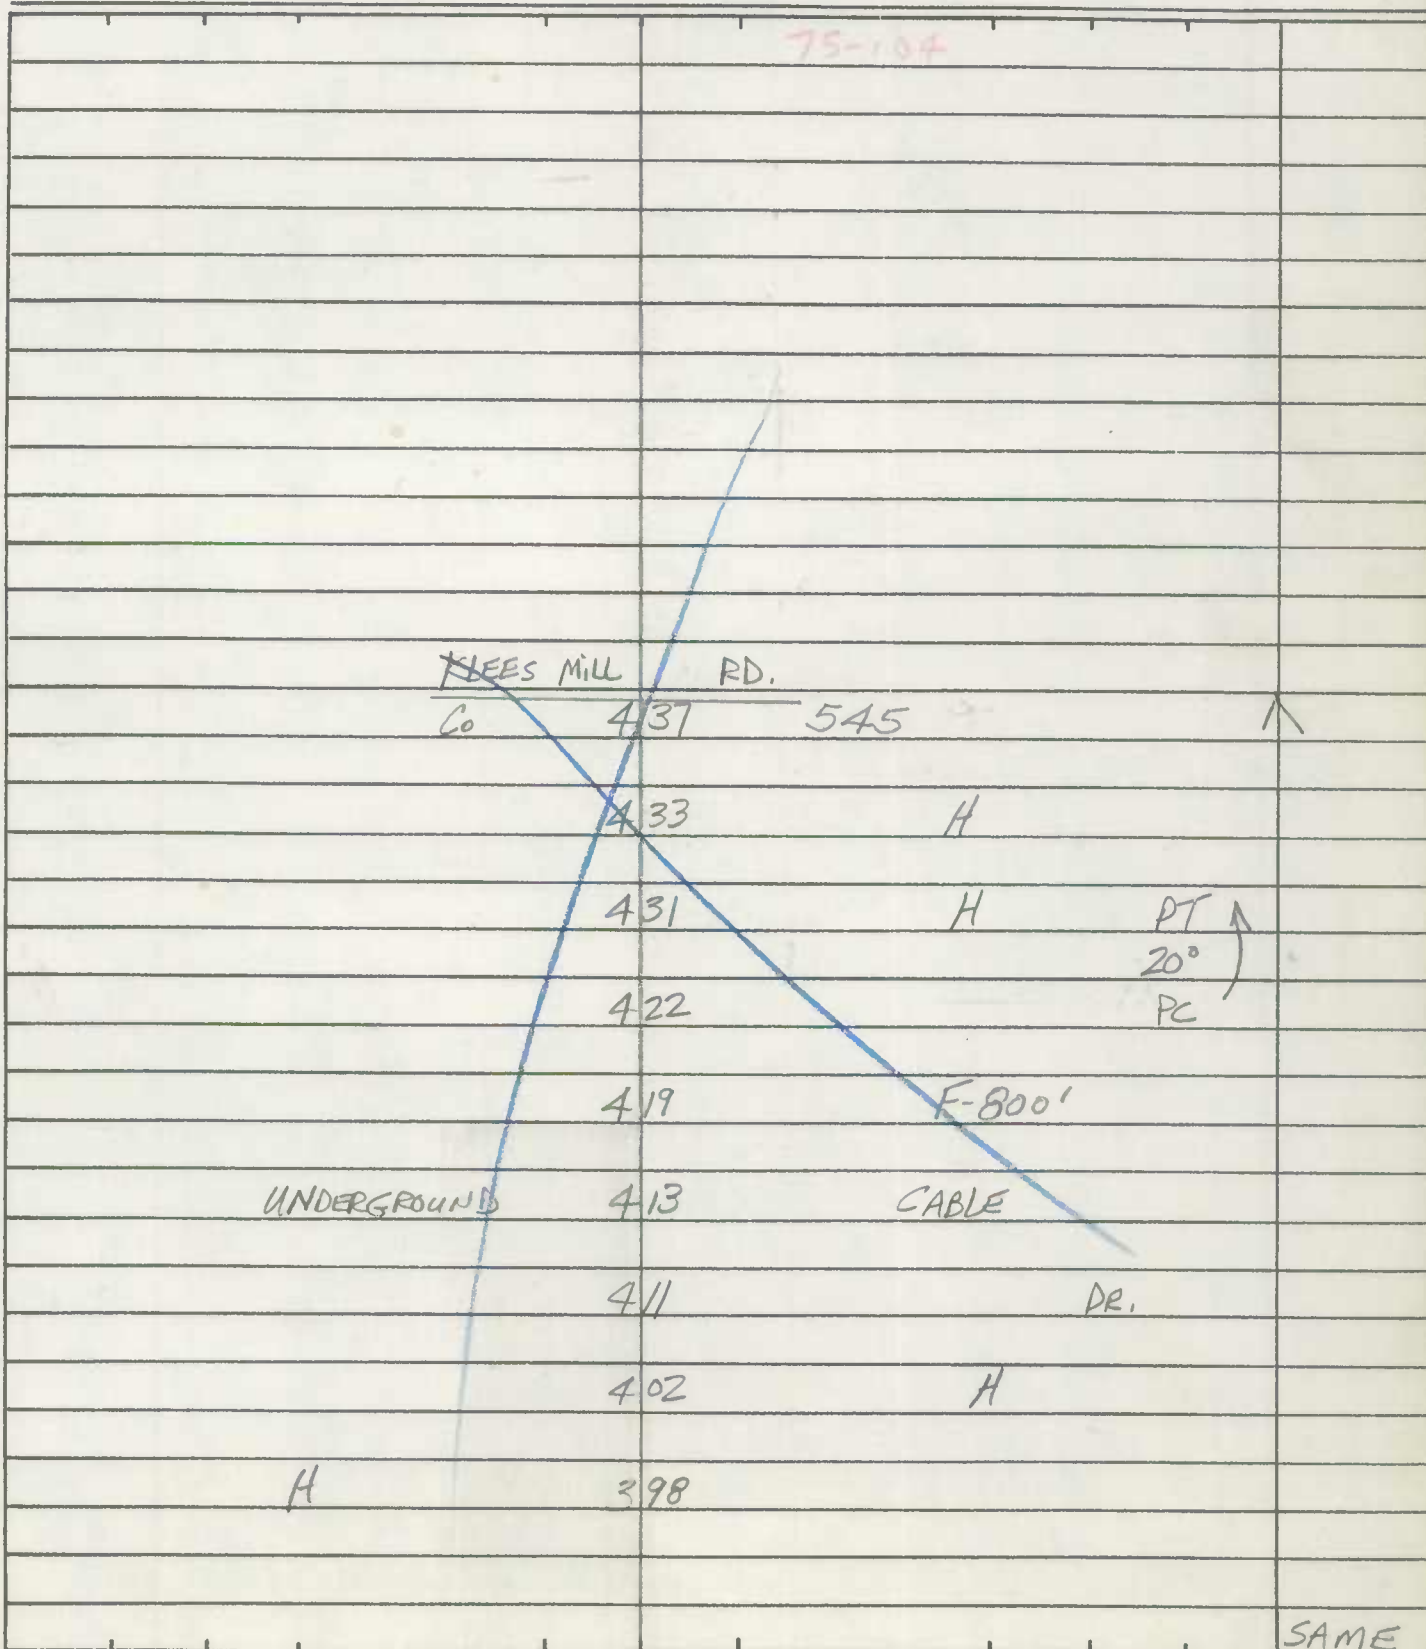 75-104
KLEES MILL RD.
Co 437 545
433 H
431 H PT
20°
422 PC
419 F-800'
UNDERGROUND 413 CABLE
411 DR.
402 H
H 398
SAME